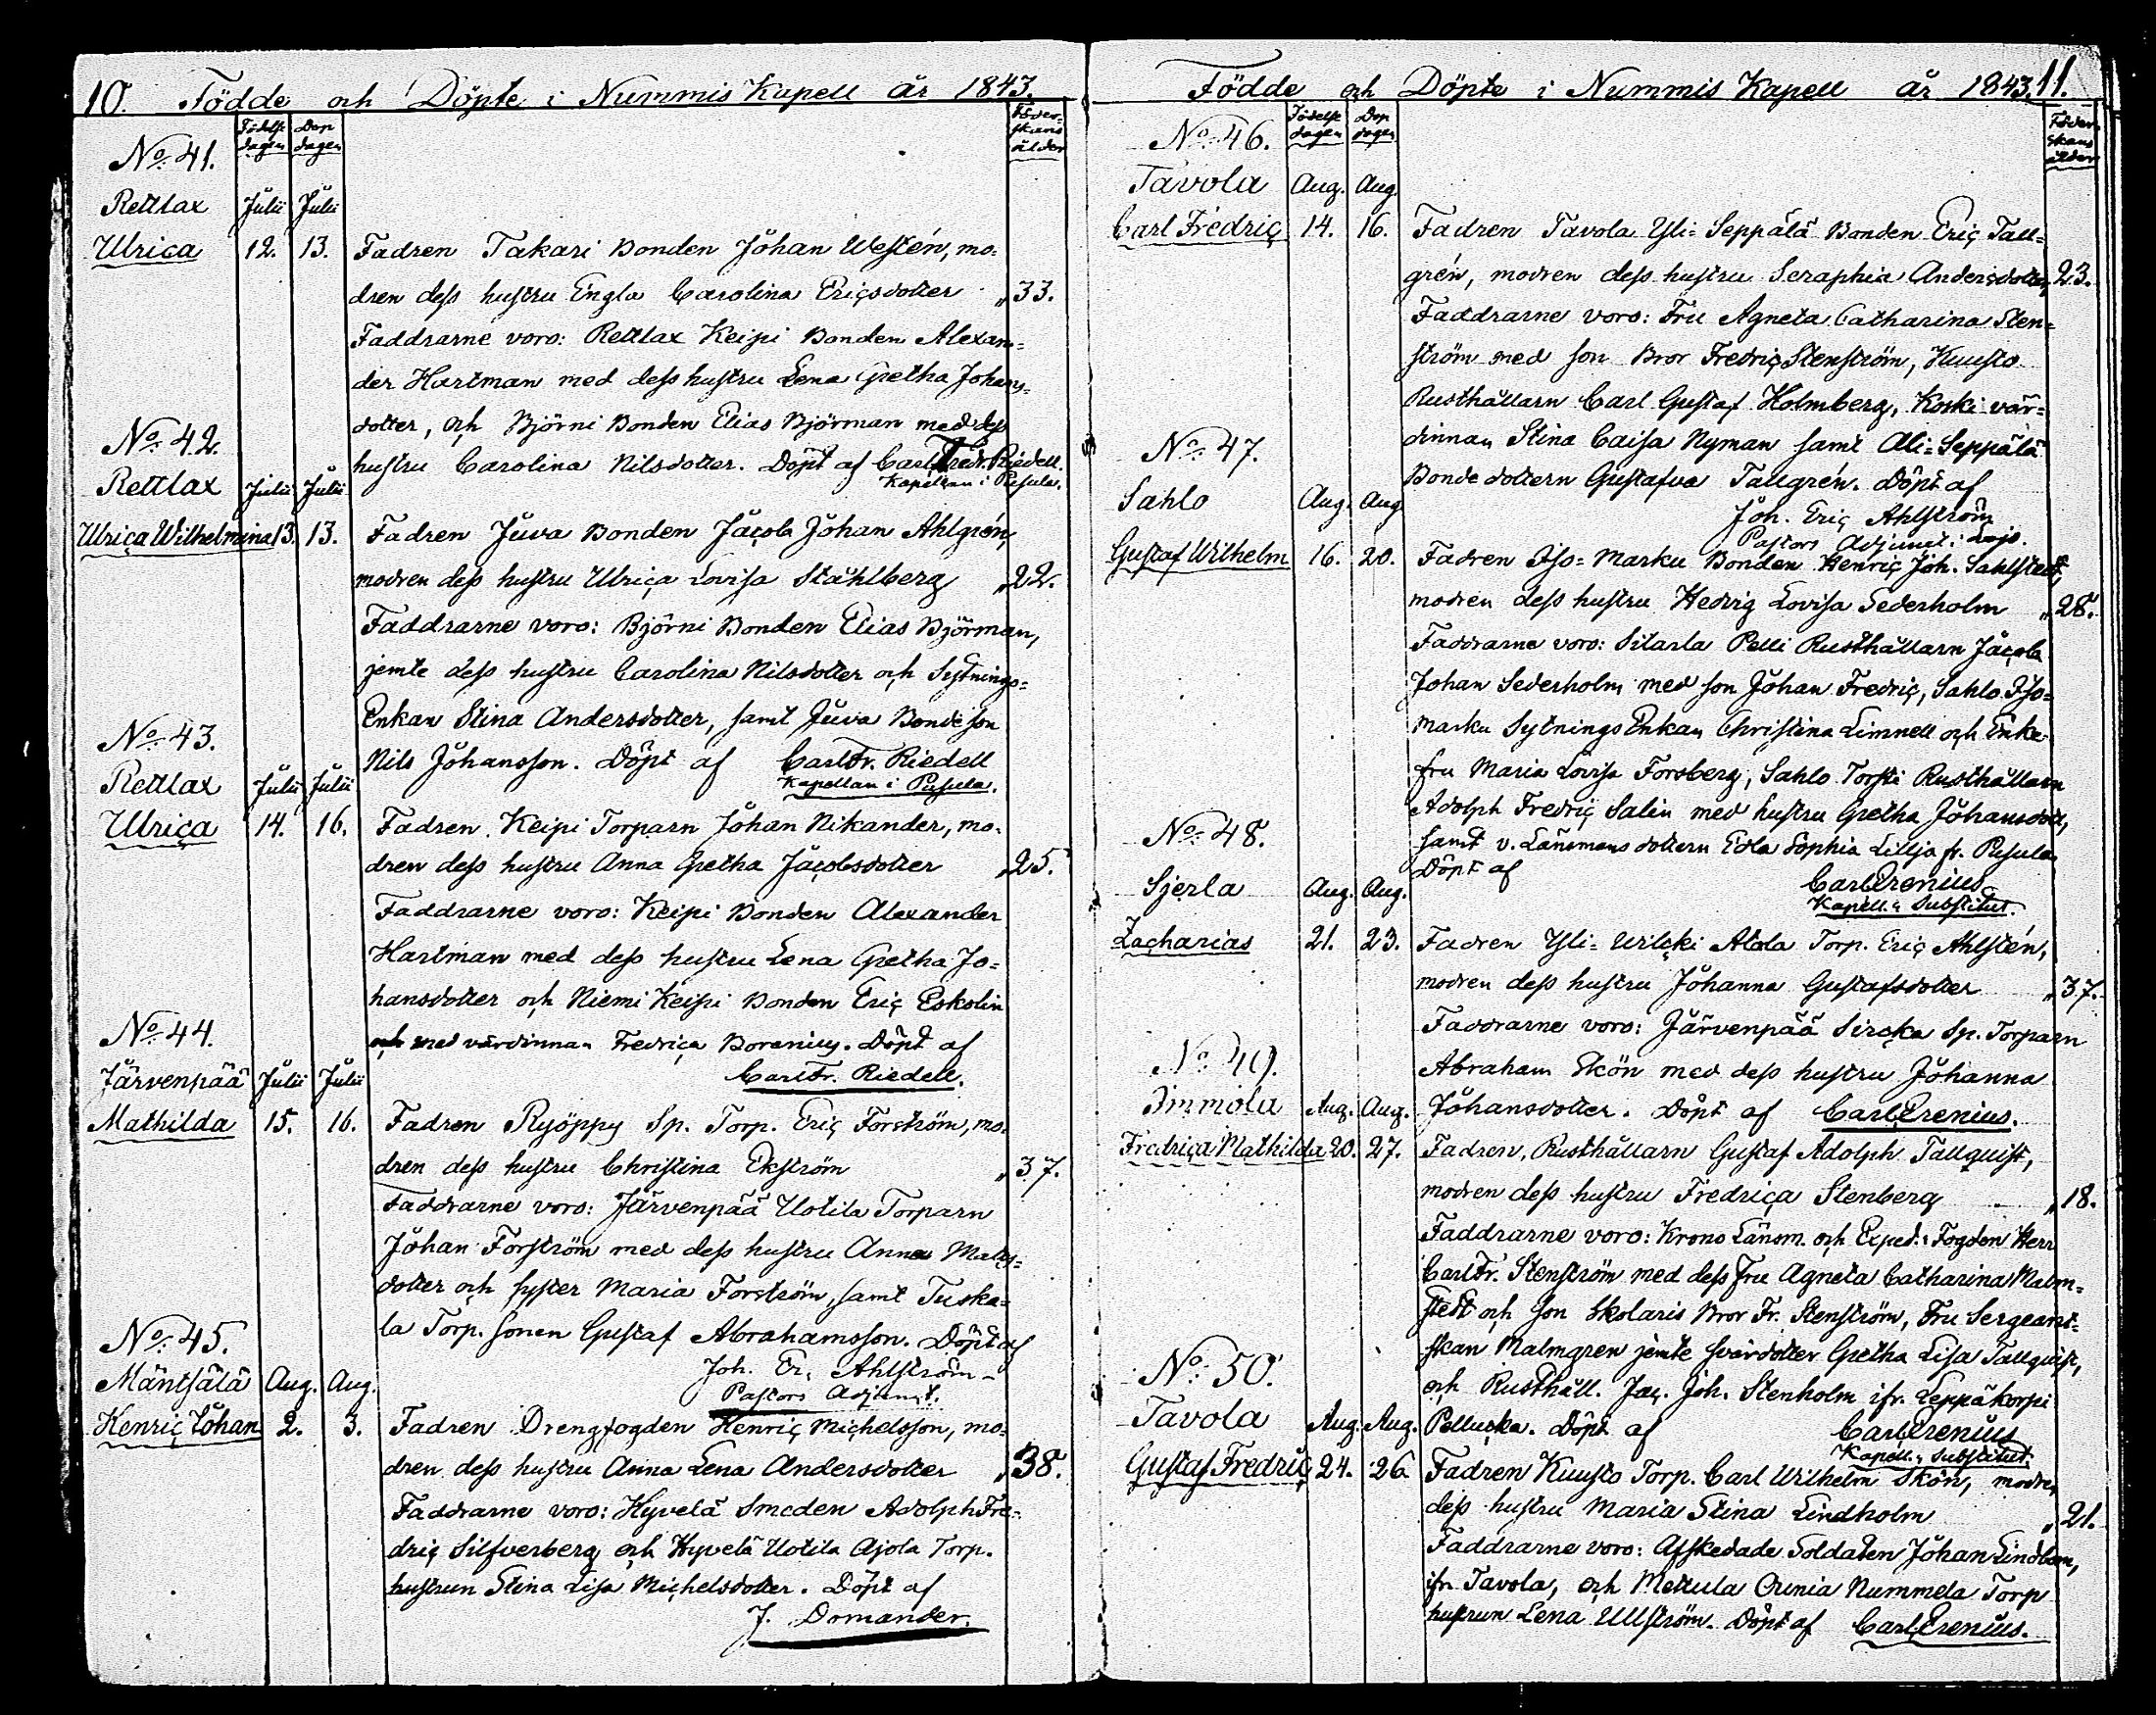 10. Födde och Döpte i Nummis Kapell år 1843.
Födelse dagen Dop dagen Föder-skans ålder
No 41.
Rettlax Julii Julii
Ulrica 12. 13. Fadren Takari Bonden Johan Westén, mo-
dren dess hustru Engla Carolina Ericsdotter „33.
Faddrarne voro: Rettlax Keipi Bonden Alexan-
der Hartman med dess hustru Lena Gretha Johans-
dotter, och Björni Bonden Elias Björman med dess
hustru Carolina Nilsdotter. Döpt af Carl Fredr. Riedell.
Kapellan i Pusula.
No 42.
Rettlax Julii Julii
Ulrica Wilhelmina 13. 13. Fadren Juva Bonden Jacob Johan Ahlgrén,
modren dess hustru Ulrica Lovisa Ståhlberg „22.
Faddrarne voro: Björni Bonden Elias Björman,
jemte dess hustru Carolina Nilsdotter och Sytnings-
Enkan Stina Andersdotter, samt Juva Bondeson
Nils Johansson. Döpt af Carl Fr. Riedell
Kapellan i Pusula.
No 43.
Rettlax Julii Julii
Ulrica 14. 16. Fadren Keipi Torparn Johan Nikander, mo-
dren dess hustru Anna Gretha Jacobsdotter „25.
Faddrarne voro: Keipi Bonden Alexander
Hartman med dess hustru Lena Gretha Jo-
hansdotter och Niemi Keipi Bonden Eric Eskolin
och med värdinnan Fredrica Boranius. Döpt af
Carl Fr. Riedell.
No 44.
Järvenpää Julii Julii
Mathilda 15. 16. Fadren Ryöppy Sp. Torp. Eric Forström, mo-
dren dess hustru Christina Ekström „37.
Faddrarne voro: Järvenpää Uotila Torparn
Johan Forström med dess hustru Anna Mats-
dotter och syster Maria Forström, samt Tuska-
la Torp. sonen Gustaf Abrahamsson. Döpt af
Joh. Er. Ahlström
Pastors Adjunct.
No 45.
Mäntsälä Aug. Aug.
Henric Johan 2. 3. Fadren Drengfogden Henric Michelsson, mo-
dren dess hustru Anna Lena Andersdotter „38.
Faddrarne voro: Hyvelä Smeden Adolph Fre-
dric Silfverberg och Hyvelä Uotila Ajola Torp.
hustrun Stina Lisa Michelsdotter. Döpt af
J. Domander.
Födde och Döpte i Nummis Kapell år 1843. 11.
Födelse dagen Dop dagen Föder-skans ålder
No 46.
Tavola Aug. Aug.
Carl Fredric 14. 16. Fadren Tavola Yli-Seppälä Bonden Eric Tall-
grén, modren dess hustru Seraphia Andersdotter, 23.
Faddrarne voro: Fru Agneta Catharina Sten-
ström med son Bror Fredric Stenström, Kuusto
Rusthållarn Carl Gustaf Holmberg, Koski vär-
dinnan Stina Caisa Nyman samt Ali-Seppälä
Bonde dottern Gustafva Tallgrén. Döpt af
Joh. Eric Ahlström
Pastors Adjunct i Lojo.
No 47.
Sahlo Aug. Aug.
Gustaf Wilhelm 16. 20. Fadren Iso-Marku Bonden Henric Joh. Sahlstedt,
modren dess hustru Hedvig Lovisa Sederholm „28.
Faddrarne voro: Sitarla Pelli Rusthållarn Jacob
Johan Sederholm med son Johan Fredric, Sahlo Iso-
Marku Sytnings Enkan Christina Limnell och Enke-
fru Maria Lovisa Forsberg, Sahlo Torsti Rusthållarn
Adolph Fredric Salin med hustru Gretha Johansdott,
samt v. Länsmans dottern Eva Sophia Lillja fr. Pusula.
Döpt af Carl Grenius
Kapell. Substitut.
No 48.
Sjerla Aug. Aug.
Zacharias 21. 23. Fadren Yli-Wilcki Atola Torp. Eric Ahlstén,
modren dess hustru Johanna Gustafsdotter „37.
Faddrarne voro: Järvenpää Sircka Sp. Torparn
Abraham Skön med dess hustru Johanna
Johansdotter. Döpt af Carl Grenius.
No 49.
Immola Aug. Aug.
Fredrica Mathilda 20. 27. Fadren, Rusthållarn Gustaf Adolph Tallquist,
modren dess hustru Fredrica Stenberg „18.
Faddrarne voro: Krono Länsm. och Exped. Fogden Herr
Carl Fr. Stenström med dess fru Agneta Catharina Malm-
stedt och son Skolaris Bror Fr. Stenström, Fru Sergeant-
skan Malmgren jemte svärdotter Gretha Lisa Tallquist,
och Rusthåll. Jac. Joh. Stenholm ifr. Leppäkorpi
Pellucka. Döpt af Carl Grenius
Kapell. Substitut.
No 50.
Tavola Aug. Aug.
Gustaf Fredric 24. 26. Fadren Kuusto Torp. Carl Wilhelm Skön, modren
dess hustru Maria Stina Lindholm „21.
Faddrarne voro: Afskedade Soldaten Johan Lindbom,
ifr. Tavola, och Mettula Ounia Nummela Torp
hustrun Lena Ullström. Döpt af Carl Grenius.